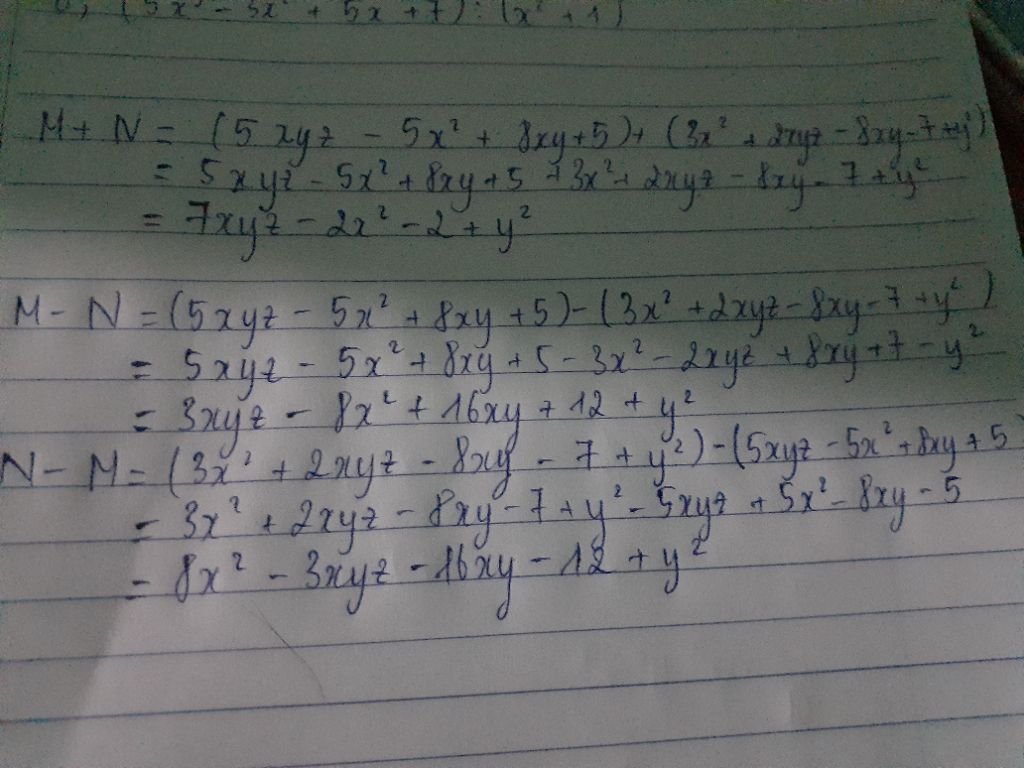 (5x³ - 3x² + 5x + 7) : (x² + 1)
M + N = (5xyz - 5x² + 8xy + 5) + (3x² + 2xyz - 8xy - 7 + y²)
= 5xyz - 5x² + 8xy + 5 + 3x² + 2xyz - 8xy - 7 + y²
= 7xyz - 2x² - 2 + y²
M - N = (5xyz - 5x² + 8xy + 5) - (3x² + 2xyz - 8xy - 7 + y²)
= 5xyz - 5x² + 8xy + 5 - 3x² - 2xyz + 8xy + 7 - y²
= 3xyz - 8x² + 16xy + 12 + y²
N - M = (3x² + 2xyz - 8xy - 7 + y²) - (5xyz - 5x² + 8xy + 5)
= 3x² + 2xyz - 8xy - 7 + y² - 5xyz + 5x² - 8xy - 5
= 8x² - 3xyz - 16xy - 12 + y²